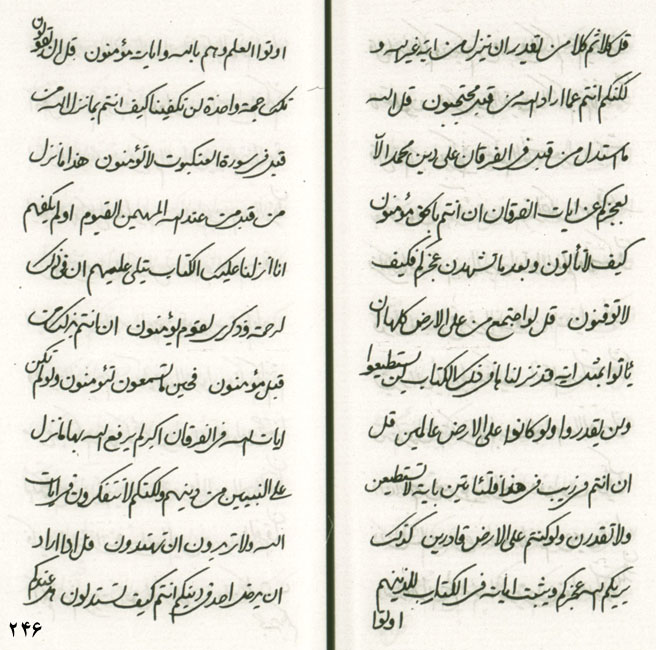 قل كلا ثم كلا من يقدر ان ينزل من اية غير الله و
لكنكم انتم عما اراد الله من قبل محتجبون قل الله
ما استدل من قبل في الفرقان على دين محمد الا
بعجزكم عن ايات الفرقان ان انتم بالحق مؤمنون
كيف لا تألون وبعد ما تشهدن عجزكم فكيف
لا توقنون قل لو اجتمع من على الارض كلها ان
يأتوا بمثل اية قد نزلنا ها في ذلك الكتاب لن يستطيعوا
ولن يقدروا ولو كانوا على الارض عالمين قل
ان انتم في ريب في هذا فلتأتين باية لا تستطيعن
ولا تقدرن ولو كنتم على الارض قادرين كذلك
يريكم الله عجزكم ويثبت اياته في الكتاب للذينهم
اوتوا
اوتوا العلم وهم بالله واياته مؤمنون قل ان تقولون
تلك حجة واحدة لن تكفينا كيف انتم بما نزل الله من
قبل في سورة العنكبوت لا تؤمنون هذا ما نزل
من قبل من عند الله المهيمن القيوم اولم يكفهم
انا انزلنا عليك الكتاب يتلى عليهم ان في ذلك
لرحمة وذكرى لقوم يؤمنون ان انتم بذلك من
قبل مؤمنون فحين ما تسمعون لتؤمنون ولو لم تكن
ايات الله في الفرقان اكبر لم يرفع الله بها ما نزل
على النبيين من دينهم ولكنكم لا تتفكرون في ايات
الله ولا تريدون ان تهتدون قل اذا اراد
ان يدخل احد في دينكم انتم كيف تستدلون من عندكم
٢۴۶